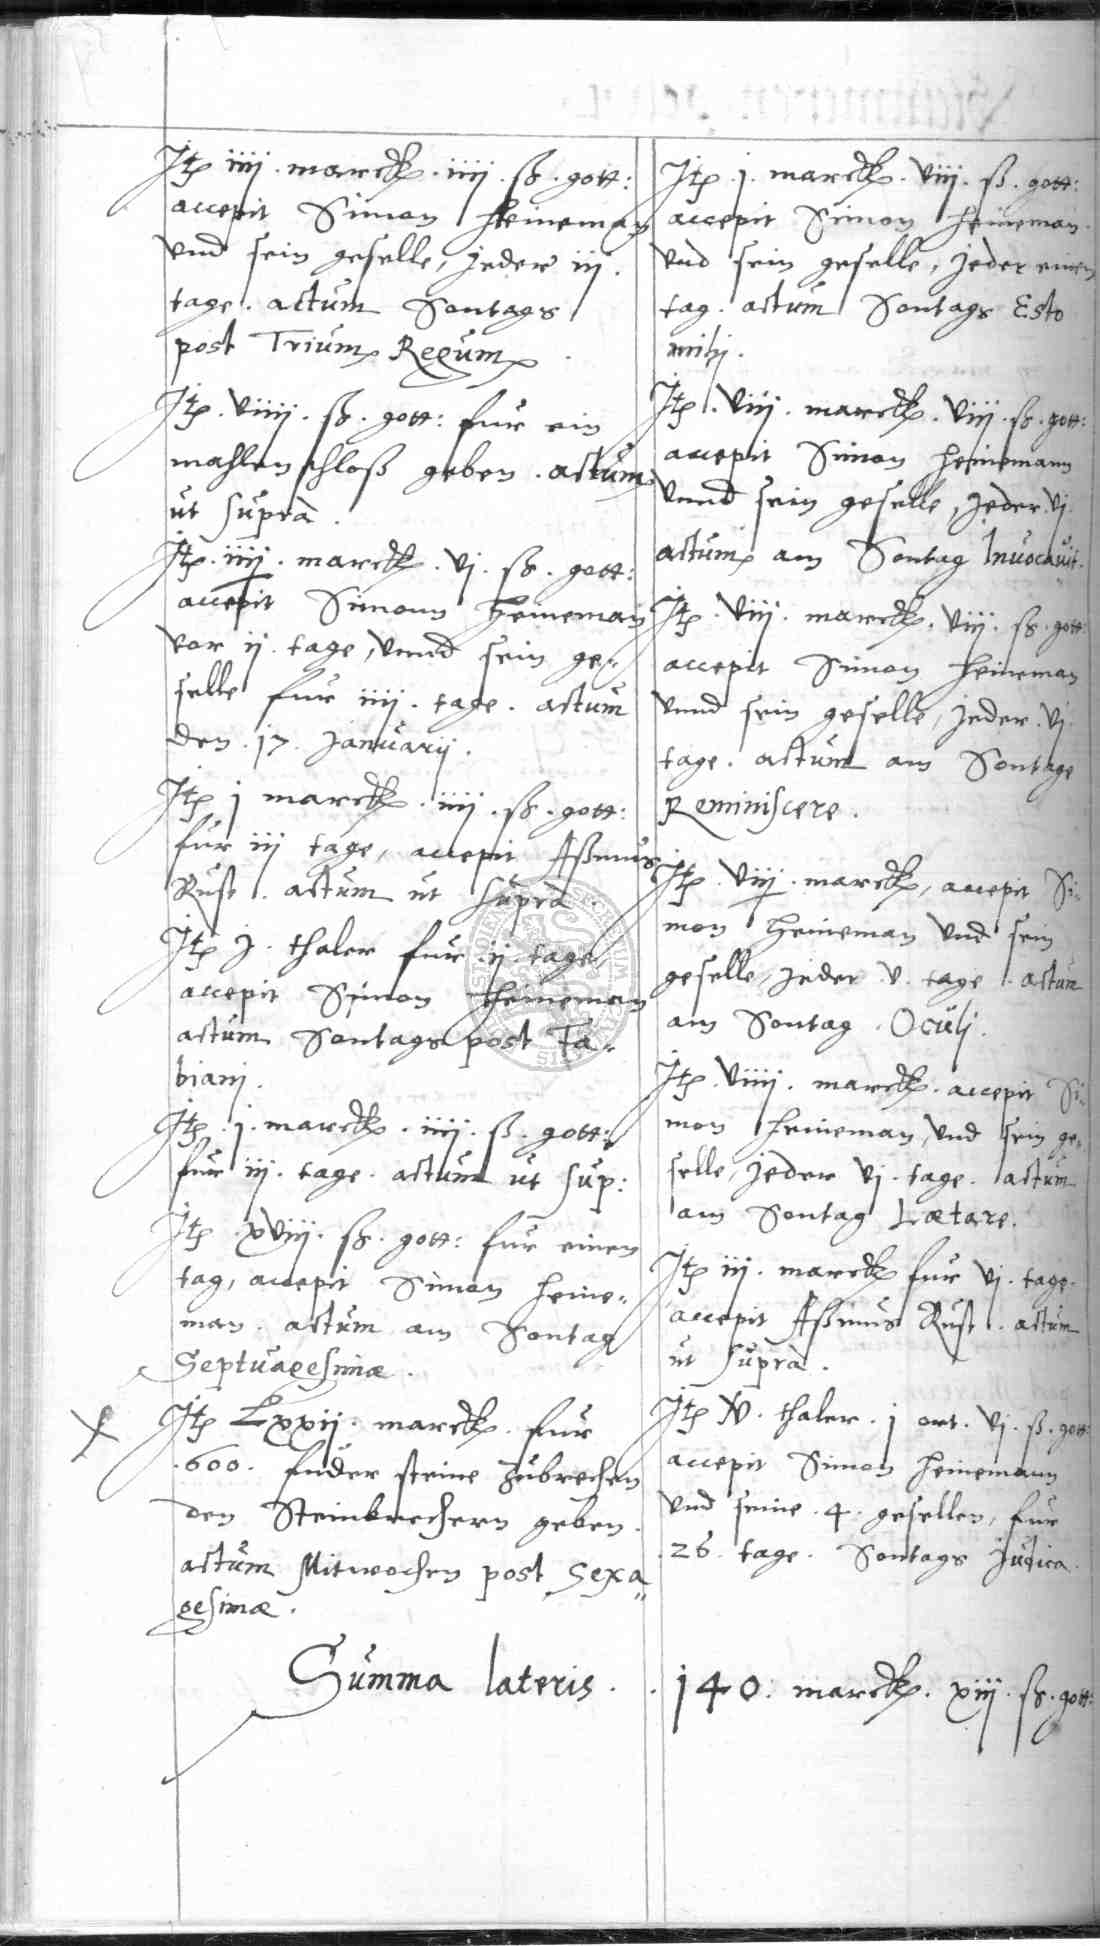 Itp iiij . marck . iiij . ß . gott:
accepit Simon Heineman
vnd sein geselle, jeder iij .
tage . actum Sontags
post Trium Regum .
Itp . viiij . ß . gott: fur ein
mahlenschloß geben . actum
ut suprà .
Itp . iiij . marck . vj . ß . gott:
accepit Simonn Heineman
vor ij . tage, vnnd sein ge„
selle fur iiij . tage . actum
den . 17 . Januarij .
Itp j marck . iiij . ß . gott:
fur iij tage, accepit Aßmus
Rust . actum ut suprà .
Itp j . thaler fur . ij . tage
accepit Simon Heineman
actum Sontags post Fa„
biani .
Itp . j . marck . iiij . ß . gott:
fur iij . tage . actum ut sup:
Itp . xviij . ß . gott: fur einen
tag, accepit Simon Heine„
man . actum am Sontag
Septuagesimæ .
Itp Lxxij . marck . fur
. 600 . fuder steine zubrechen
den Steinbrechern geben .
actum Mitwochen post Sexa„
gesimæ .
Itp . j . marck . viij . ß . gott:
accepit Simon Heineman .
vnd sein geselle, jeder einen
tag . actum Sontags Esto
mihj .
Itp . viij . marck . viij . ß . gott:
accepit Simon Heinemann
vnnd sein geselle, jeder . vj .
actum am Sontag Invocavit .
Itp . viij . marck . viij . ß . gott:
accepit Simon Heineman
vnnd sein geselle, jeder . vj .
tage . actum am Sontage
Reminiscere .
Itp . viij . marck, accepit Si„
mon Heineman vnd sein
geselle, jeder . v . tage . actum
am Sontag . Oculj .
Itp . viiij . marck . accepit Si„
mon Heineman, vnd sein ge„
selle, jeder vj . tage . actum
am Sontag Lætare .
Itp iij . marck fur vj . tage .
accepit Aßmus Rust . actum
ut suprà .
Itp . thaler . j ort . vj . ß . gott:
accepit Simon Heinemann
vnd seine . 4 . gesellen, fur
. 26 . tage . Sontags Judica .
Summa lateris . . 140 : marck . xiij . ß . gott: